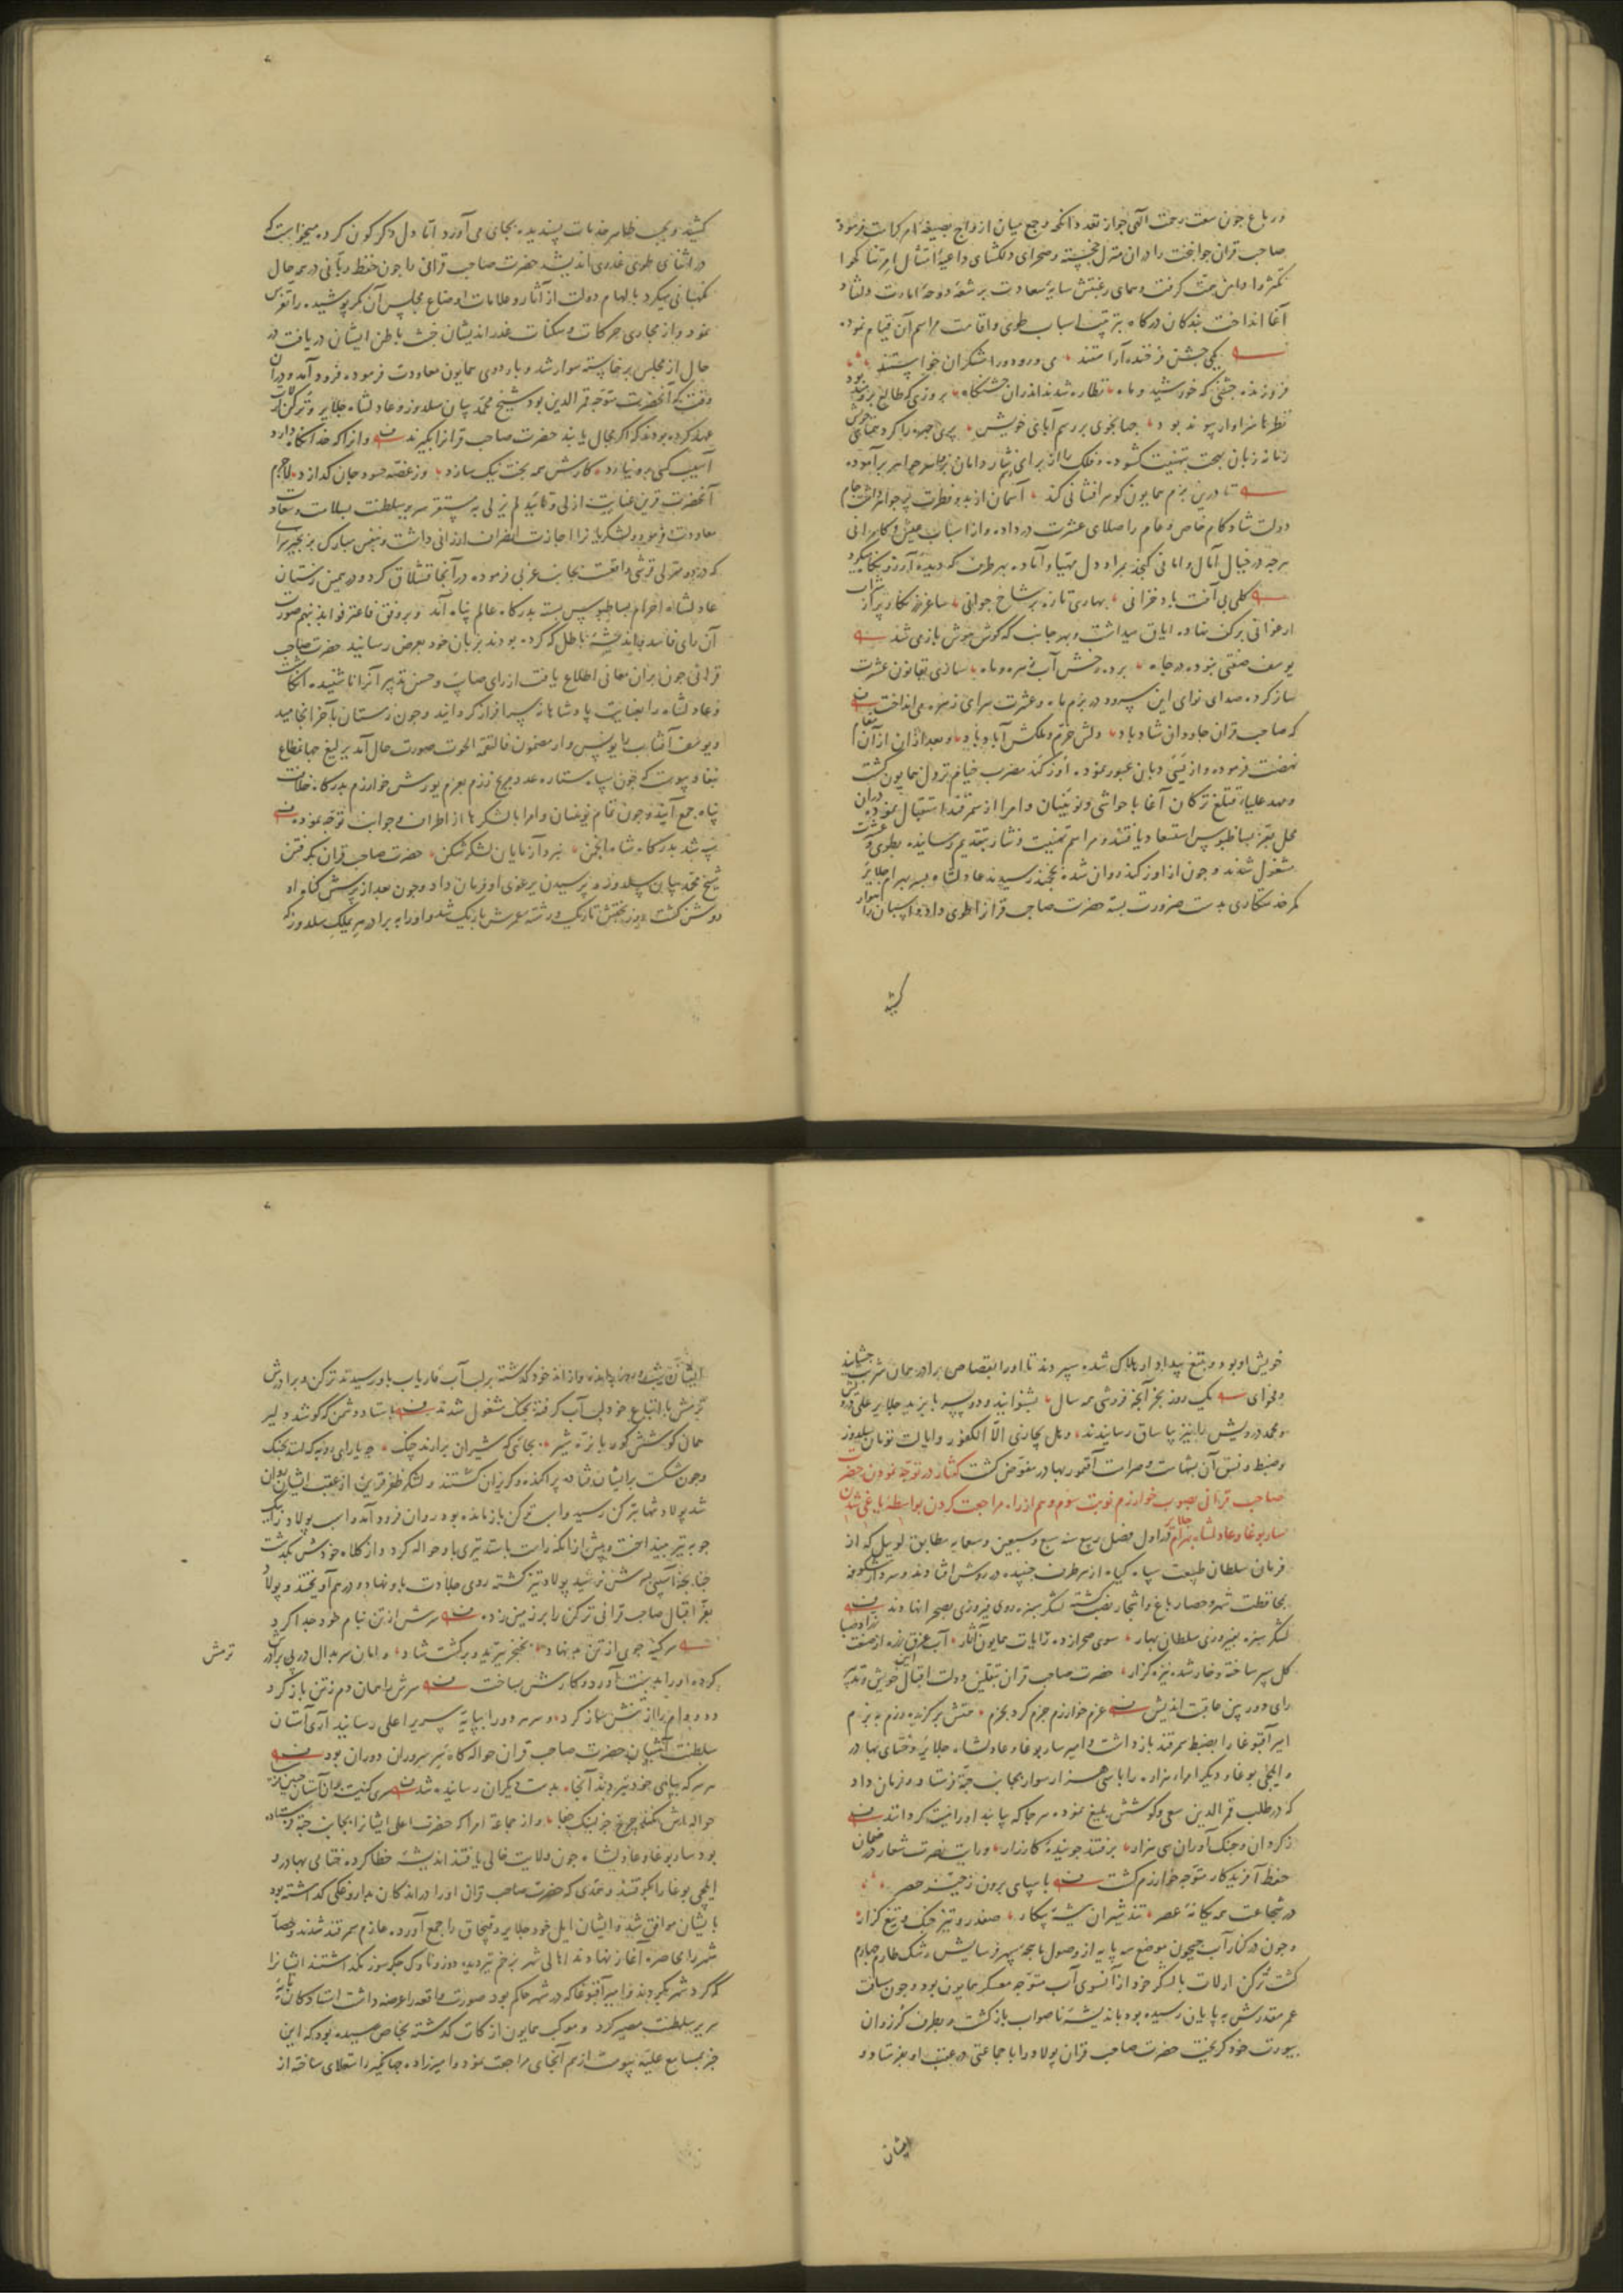 در باغ چون سعت رحمت الهی جواز تعدد انکحه و جمع میان ازدواج بصیغهٔ امر کرامت فرموده
صاحب قران جوانبخت را در آن منزل خجسته و صحرای دلکشای داعیهٔ امتثال امر تناکحوا
تکثروا دامن همت گرفت و همای رغبتش سایهٔ سعادت بر شعبهٔ دوحهٔ امارت دلشاد
آغا انداخت بندکان درکاه بترتیب اسباب طوی و اقامت مراسم آن قیام نمود
یکی جشن فرخنده آراستند می و رود و رامشکران خواستند
فروزنده جشنی که خورشید و ماه نظاره شدند اندران جشنکاه بروزی که طالع برومند بود
نظرها سزاوار پیوند بود جهانجوی بر رسم آبای خویش پری چهره را کرد همتای خویش
زمانه زبان بهجت بتهنیت کشوده و فلک را از برای نثار دامان پر جواهر برآموده
تا درین بزم همایون کوهر افشانی کند آسمان از بدو فطرت پر جواهر داشت جام
دولت شاد کام خاص و عام را صلای عشرت در داده و از اسباب عیش و کامرانی
هرچه در خیال آمال و امانی کنجد بمراد دل مهیا و آماده بهر طرف که دیدهٔ آرزو نکاه میکرد
کلی بی آفت باد خزانی بهاری تازه بر شاخ جوانی ساغر نکار پر از شراب
ارغوانی بر کف نهاده ایاق میداشت و بهر جانب که کوش هوش باز می شد
یوسف صفتی نبوده در چاه برده رخش آب زهره و ماه بسازی بقانون عشرت
ساز کرده صدای نوای این سرود در بزم ماه و عشرت سرای زهره می انداخت
که صاحب قران جاودان شاد باد دلش خرم و ملکش آباد باد و بعد از آن از آن مقام
نهضت فرموده و از یسی دبان عبور نموده اوزکند مضرب خیام نزول همایون کشت
و مهد علیا قتلغ ترکان آغا با حواشی و نوئینان و امرا از سمرقند استقبال نموده در آن
محل بعز بساطبوس استسعاد یافتند و مراسم تهنیت و نثار بتقدیم رسانیده بطوی و عشرت
مشغول شدند و چون از اوزکند روان شده بخجند رسیدند عادلشاه پسر بهرام جلایر
کمر خدمتکاری بدست ضرورت بسته حضرت صاحب قرانرا طوی داد و اسبان راهوار
کشید
کشید و بحسب ظاهر خدمات پسندیده بجای می آورد اما دل دکرکون کرده میخواست که
در اثنای طوی غدری اندیشد حضرت صاحب قرانی را چون حفظ ربانی در همه حال
نکهبانی میکرد بالهام دولت از آثار و علامات اوضاع مجلس آن مکر پوشیده را تفرس
نمود و از مجاری حرکات و سکنات غدر اندیشان خبث باطن ایشان دریافت در
حال از مجلس برخاسته سوار شد و باردوی همایون معاودت فرموده فرود آمد و در آن
وقت که آنحضرت متوجه قمر الدین بود شیخ محمد بیان سلدوز و عادلشاه جلایر و ترکن ارلات
عهد کرده بودند که اکر مجال یابند حضرت صاحب قرانرا بکیرند و آنرا که خدا نکاه دارد
آسیب کسی برو نیارد کارش همه بخت نیک سازد وز غصه حسود جان کدازد لاجرم
آنحضرت قرین عنایت ازلی و تائید لم یزلی بمستقر سریر سلطنت بسلامت و سعادت
معاودت فرمود و لشکریانرا اجازت انصراف ارزانی داشت و بنفس مبارک بزنجیر سرای
که در دو منزلی قرشی واقعست بجانب غربی فرموده در آنجا قشلاق کرد و در همین زمستان
عادلشاه احرام بساطبوس بسته بدرکاه عالم پناه آمد و بر وفق فاعترفوا بذنبهم صورت
آن رای فاسد و اندیشهٔ باطل که کرده بودند بزبان خود بعرض رسانید حضرت صاحب
قرانی چون بر آن معانی اطلاع یافت از رای صایب و حسن تدبیر آنرا ناشنیده انکاشت
و عادلشاه را بعنایت پادشاهانه سرافراز کردانید و چون زمستان بآخر انجامید
و یوسف آفتاب را یونس وار مضمون فالتقمه الحوت صورت حال آمد یرلیغ جهانمطاع
بنفاذ پیوست که چون سپاه ستاره عدد مریخ رزم بعزم یورش خوارزم بدرکاه خلافت
پناه جمع آیند و چون تمام نوئینان و امرا با لشکرها از اطراف و جوانب توجه نموده
شد بدرکاه شاه انجمن نبرد آزمایان لشکر شکن حضرت صاحب قران بکرفتن
شیخ محمد بیان سلدوز و پرسیدن یرغوی او فرمان داد و چون بعد از پرسش کناه او
روشن کشت روز بختش تاریک و رشتهٔ عمرش باریک شد و او را به برادر هری ملک سلدوز که
خویش او بود و بتیغ بیداد او هلاک شده سپردند تا او را بقصاص برادر همان شربت چشانید
و فحوای یک روز بخر آنچه فروشی همه سال بشنوانید و دو پسر بایزید جلایر علی درویش
و محمد درویش را نیز بیاساق رسانیدند و هل یجازی الا الکفور و ایالت تومان سلدوز
و ضبط و نسق آن بشهامت و صرامت آقتمور بهادر مفوض کشت کفتار در توجه نمودن حضرت
صاحب قرانی بصوب خوارزم نوبت سوم و هم از راه مراجعت کردن بواسطهٔ یاغی شدن
سار بوغا و عادلشاه بهرام جلایر در اول فصل ربیع سنه سبع و سبعین و سبعمایه مطابق لوییل که از
فرمان سلطان طبیعت سپاه کیاه از هر طرف جنبیده در روش افتادند و سردار شکوفه
بمحافظت شهر و حصار باغ و اشجار نصب کشته لشکر سبزه روی فیروزی بصحرا نهادند
لشکر سبزه بفیروزی سلطان بهار سوی صحرا زده رایات همایون آثار آب عرق زره از صنعت باد صبا
کل سپر ساخته و خار شده نیزه کزار حضرت صاحب قران بتلقین دولت اقبال آیین خویش و تدبیر
رای دوربین عاقبت اندیش عزم خوارزم جزم کرد بحزم فتنش برکزیده رزم به بزم
امیر آقبوغا را بضبط سمرقند بازداشت و امیر ساربوغا و عادلشاه جلایر و ختای بهادر
و ایلچی بوغا و دیکر امراء هزاره را با سی هزار سوار بجانب جته فرستاد و فرمان داد
که در طلب قمر الدین سعی و کوشش بلیغ نموده هر جا که یابند او را نیست کردانند
ز کردان و جنک آوران سی هزار برفتند جویندهٔ کارزار و رایت نصرت شعار در ضمان
حفظ آفریدکار متوجه خوارزم کشت با سپاهی برون ز حیّز حصر
در شجاعت همه یکانهٔ عصر تند شیران بیشهٔ پیکار صفدر و تیز جنک و تیغ کزار
و چون در کنار آب جیحون موضع سه پایه از وصول ماهچهٔ سپهر فرسایش رشک طارم چهارم
کشت ترکن ارلات با لشکر خود از آنسوی آب متوجه معسکر همایون بود و چون مسافت
عمر مقدرش به پایان رسیده بود باندیشهٔ ناصواب بازکشت و بطرف کرزوان
بیورت خود کریخت حضرت صاحب قران پولاد را با جماعتی در عقب او بفرستاد و
ایشان
ایشان شب و روز رانده و از اندخود کذشته بر لب آب فاریاب باو رسیدند ترکن و برادرش
ترمش با اتباع خود لب آب کرفته بجنک مشغول شدند باستاد دشمن که کوشد دلیر
همان کوشش کور با نره شیر بجائی که شیران برارند چنک چه یارای روبه که استد بجنک
و چون شکست بر ایشان افتاد پراکنده و کریزان کشتند و لشکر ظفر قرین از عقب ایشان روان
شد پولاد تنها بترکن رسید و اسب ترکن باز مانده بود روان فرود آمد و اسب پولاد را بیک
چوبه تیر بینداخت و پیش از آنکه راست بایستد تیری باو حواله کرد و از کلاه خودش بکذشت
چنانچه آسیبی بسرش نرسید پولاد تیز کشته روی جلادت باو نهاد و در هم آویختند و پولاد
بفر اقبال صاحب قرانی ترکن را بر زمین زد سرش از تن تیام خود جدا کرد
سر کینه جوی از تن بد نهاد بخنجر ببرید و برکشت شاد و امان سر بدال در پی برادرش ترمش
کرده او را بدست آورد و کارش بساخت سرش را همان دم ز تن باز کرد
دد و دام را از تنش ساز کرد و سر هر دو را بپایهٔ سریر اعلی رسانید آری آستان
سلطنت آشیان حضرت صاحب قران حواله کاه سر سروران دوران بود
هر سر که بپای خود نبردند آنجا بدست دیکران رسانیده شد
حواله اش نکند چرخ جز بنیک جفا و از جماعهٔ امرا که حضرت اعلی ایشانرا بجانب جته فرستاده
بود ساربوغا و عادلشاه چون ولایت خالی یافتند اندیشهٔ خطا کرده ختای بهادر و
ایلچی بوغا را بکرفتند و حمدی که حضرت صاحب قران او را در اندکان بداروغکی کذاشته بود
با ایشان موافق شد و ایشان ایل خود جلایر و قبچاق را جمع آورده عازم سمرقند شدند و بمحاصرهٔ
شهر را محاصره آغاز نهادند اهالی شهر بزخم تیر دیده دوز و ناوک جکر سوز نکذاشتند ایشانرا
که کرد شهر بکردند و امیر آقبوغا که در شهر حاکم بود صورت واقعه را عرضه داشت استادکان پایهٔ
سریر سلطنت مصیر کرد و موکب همایون از کات کذشته بخاص رسیده بود که این
خبر بمسامع علیه پیوست از هم آنجای مراجعت نمود و امیرزاده جهانکیر را منقلای ساخته از
ترمش